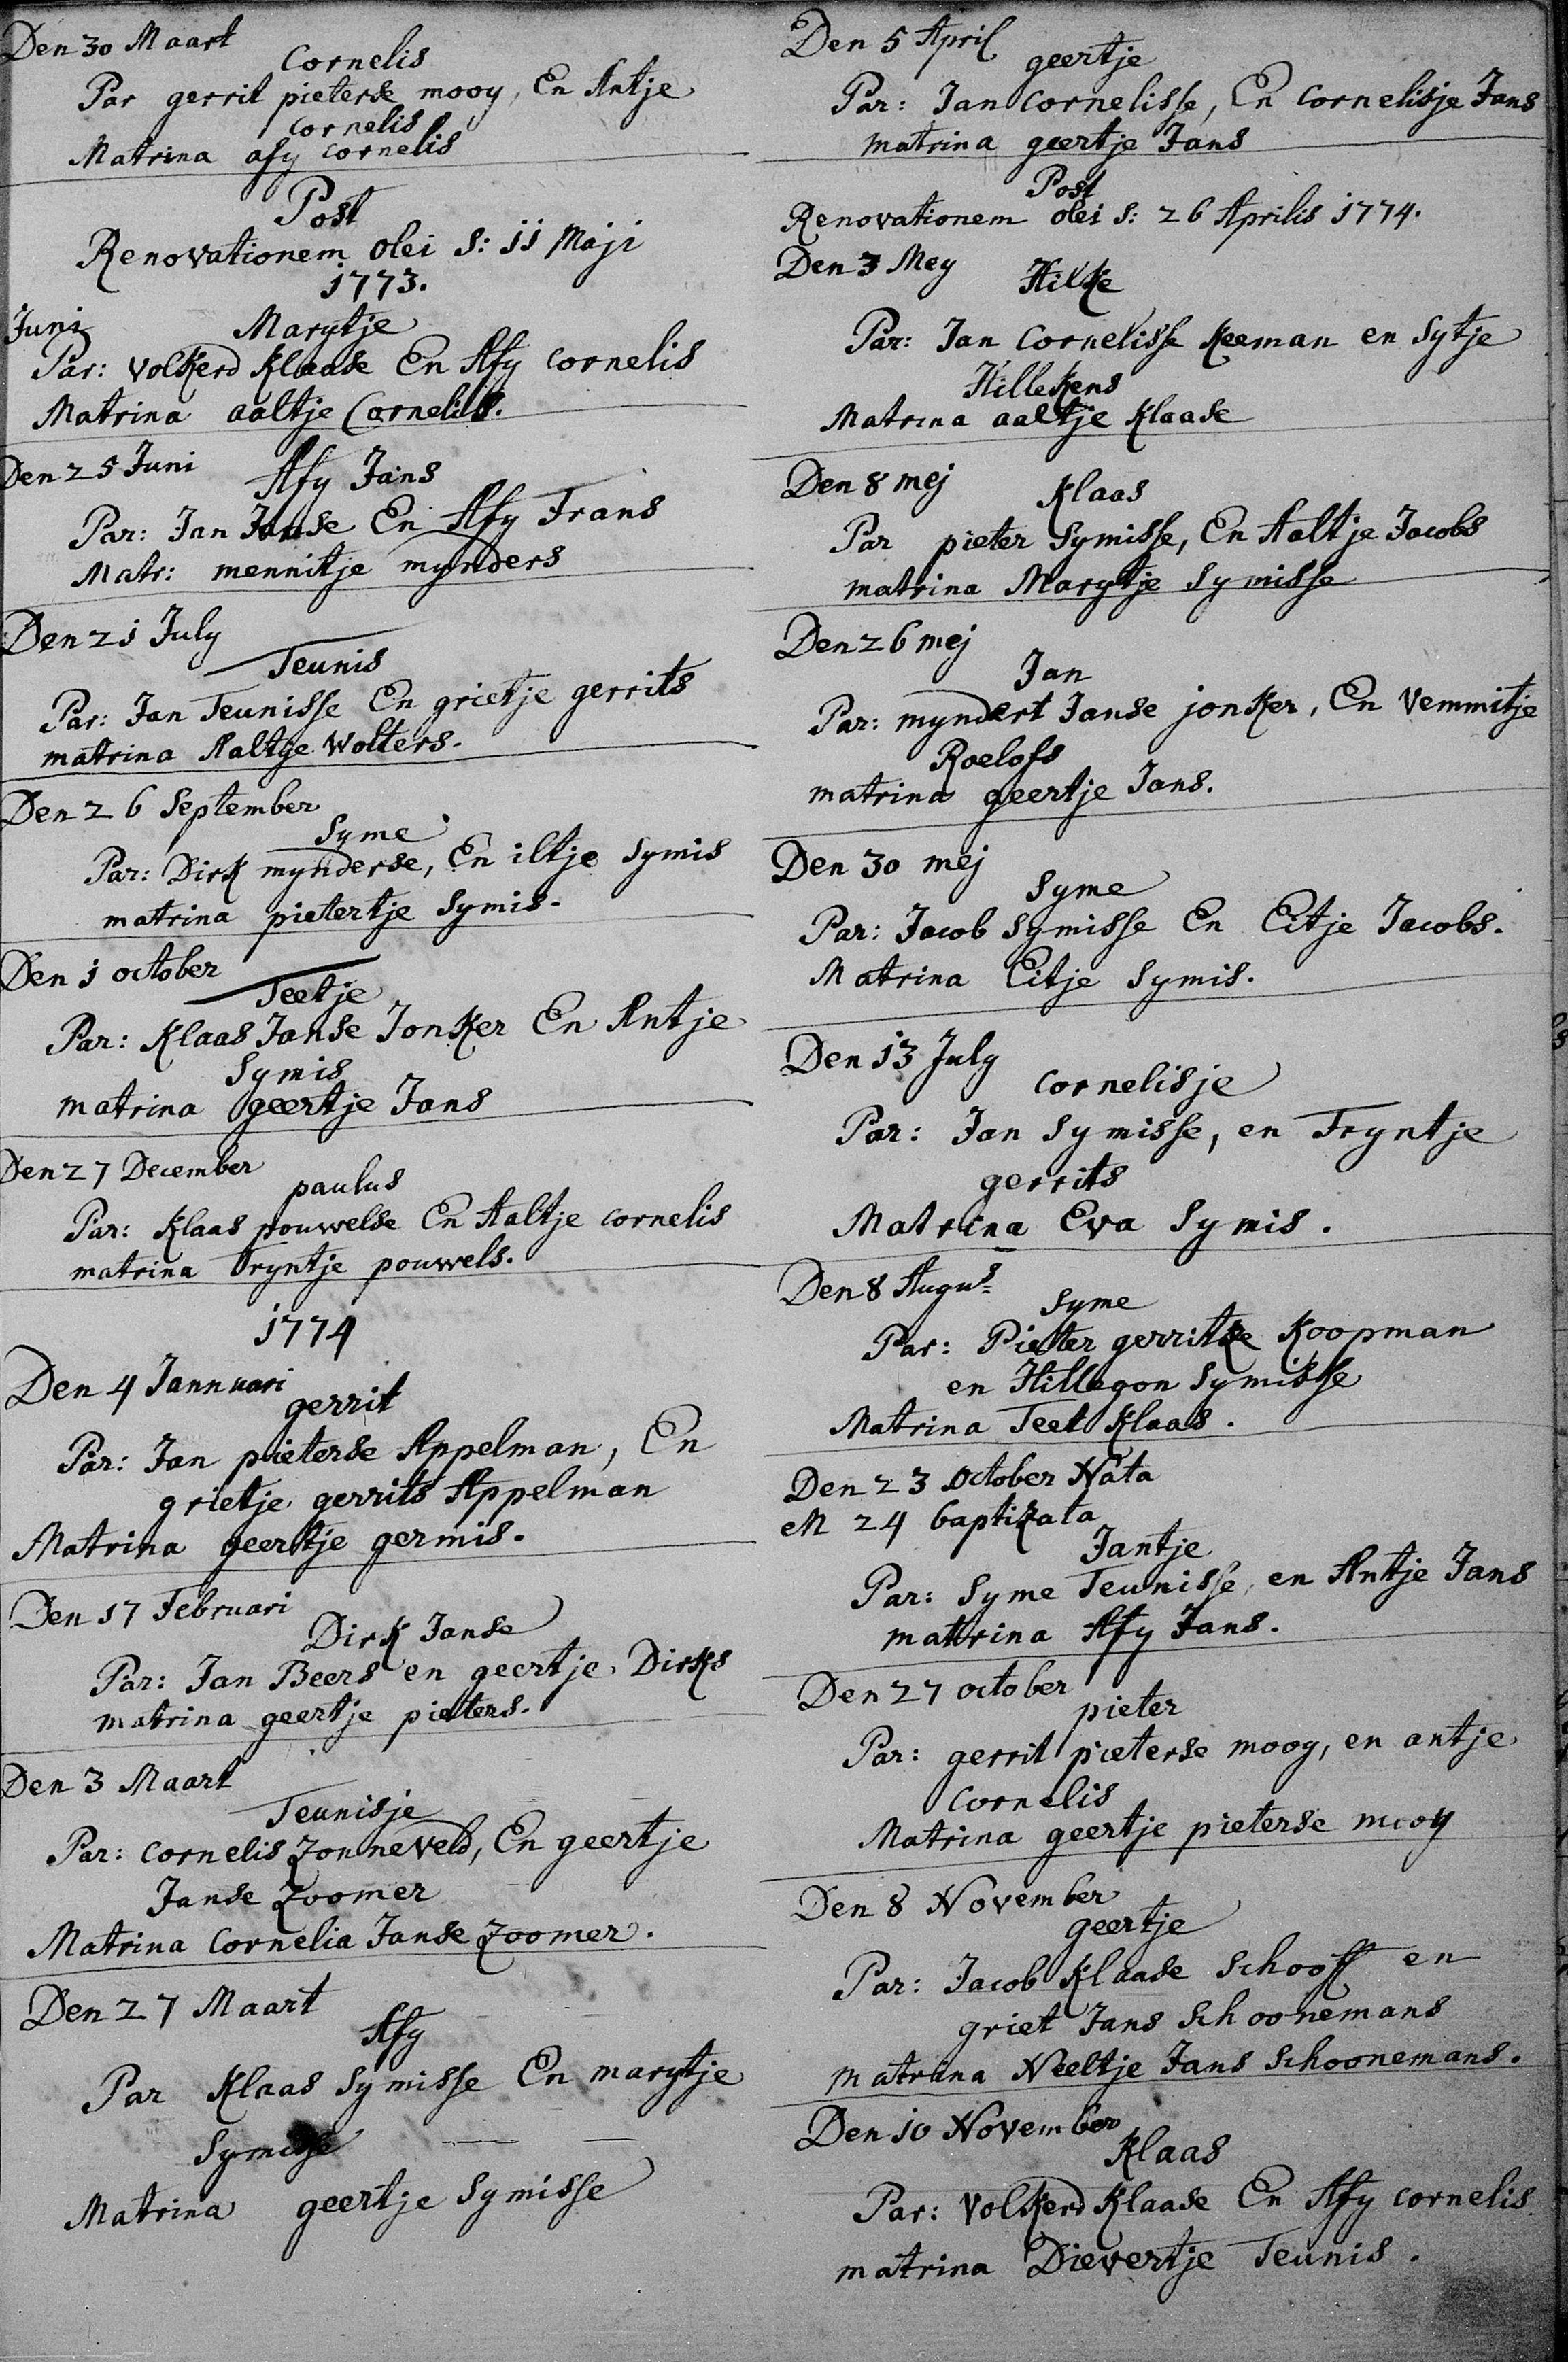 Den 30 Maart
Cornelis
Par gerrit pieterse mooy, En Antje
cornelis
Matrina afy cornelis
Post
Renovationem olei S: 11 Maji
1773.
Juni
Marytje
Par: volkerd Klaase En Afy cornelis
Matrina aaltje Cornelis.
Den 25 Juni
Afy Jans
Par: Jan Janse En Afy Frans
Matr: mennitje mynders
Den 21 July
Teunis
Par: Jan Teunisse En grietje gerrits
matrina Aaltje Wolters.
Den 26 September
Syme
Par: Dirk mynderse, En iltje Symis
matrina pietertje Symis.
Den 1 october
Teetje
Par: Klaas Janse Jonker En Antje
Symis
matrina geertje Jans
Den 27 December
paulus
Par: Klaas pouwelse En Aaltje cornelis
matrina Tryntje pouwels.
1774
Den 4 Jannuari
gerrit
Par: Jan pieterse Appelman, En
grietje gerrits Appelman
Matrina geertje germis.
Den 17 Februari
Dirk Janse
Par: Jan Beers en geertje Dirks
matrina geertje pieters.
Den 3 Maart
Teunisje
Par: cornelis Zonneveld, En geertje
Janse Zoomer
Matrina Cornelia Janse Zoomer.
Den 27 Maart
Afy
Par Klaas Symisse En marytje
Symisse
Matrina geertje Symisse
Den 5 April
geertje
Par: Jan Cornelisse, En Cornelisje Jans
matrina geertje Jans
Post
Renovationem olei S: 26 Aprilis 1774.
Den 3 Mey
Hilke
Par: Jan Cornelisse Keeman en Sytje
Hillekens
Matrina aaltje Klaase
Den 8 mej
Klaas
Par pieter Symisse, En Aaltje Jacobs
matrina Marytje Symisse
Den 26 mej
Jan
Par: myndert Janse jonker, En Vemmitje
Roelofs
matrina geertje Jans.
Den 30 mej
Syme
Par: Jacob Symisse En Eitje Jacobs.
Matrina Eitje Symis.
Den 13 July
cornelisje
Par: Jan Symisse, en Tryntje
gerrits
Matrina Eva Symis.
Den 8 Augus
Syme
Par: Pieter gerritze Koopman
en Hillegon Symisse
Matrina Teet Klaas.
Den 23 October Nata
en 24 baptizata
Jantje
Par: Syme Teunisse, en Antje Jans
matrina Afy Jans.
Den 27 october
pieter
Par: gerrit pieterse mooy, en antje
Cornelis
Matrina geertje pieterse mooy
Den 8 November
geertje
Par: Jacob Klaase Schooff en
griet Jans Schoonemans
matrina Neeltje Jans Schoonemans.
Den 10 November
Klaas
Par: Volkerd Klaase En Afy cornelis
matrina Dievertje Teunis.